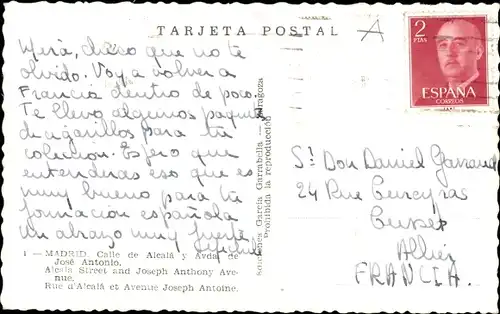 TARJETA POSTAL
A
2
PTAS
ESPAÑA
CORREOS
Mira, chico que no te
olvido. Voy a volver a
Francia dentro de poco.
Te llevo algunos paquetes
de cigarillos para tu
colección. Espero que
entenderas eso que es
muy bueno para tu
formación española
un abrazo muy fuerte
Sr. Don Daniel
24 Rue
Cusset
Allier
FRANCIA.
Sucesores García Garrabella — Zaragoza
Prohibida la reproducción
1 — MADRID. Calle de Alcalá y Avda. de
José Antonio.
Alcala Street and Joseph Anthony Ave-
nue.
Rue d'Alcalá et Avenue Joseph Antoine.